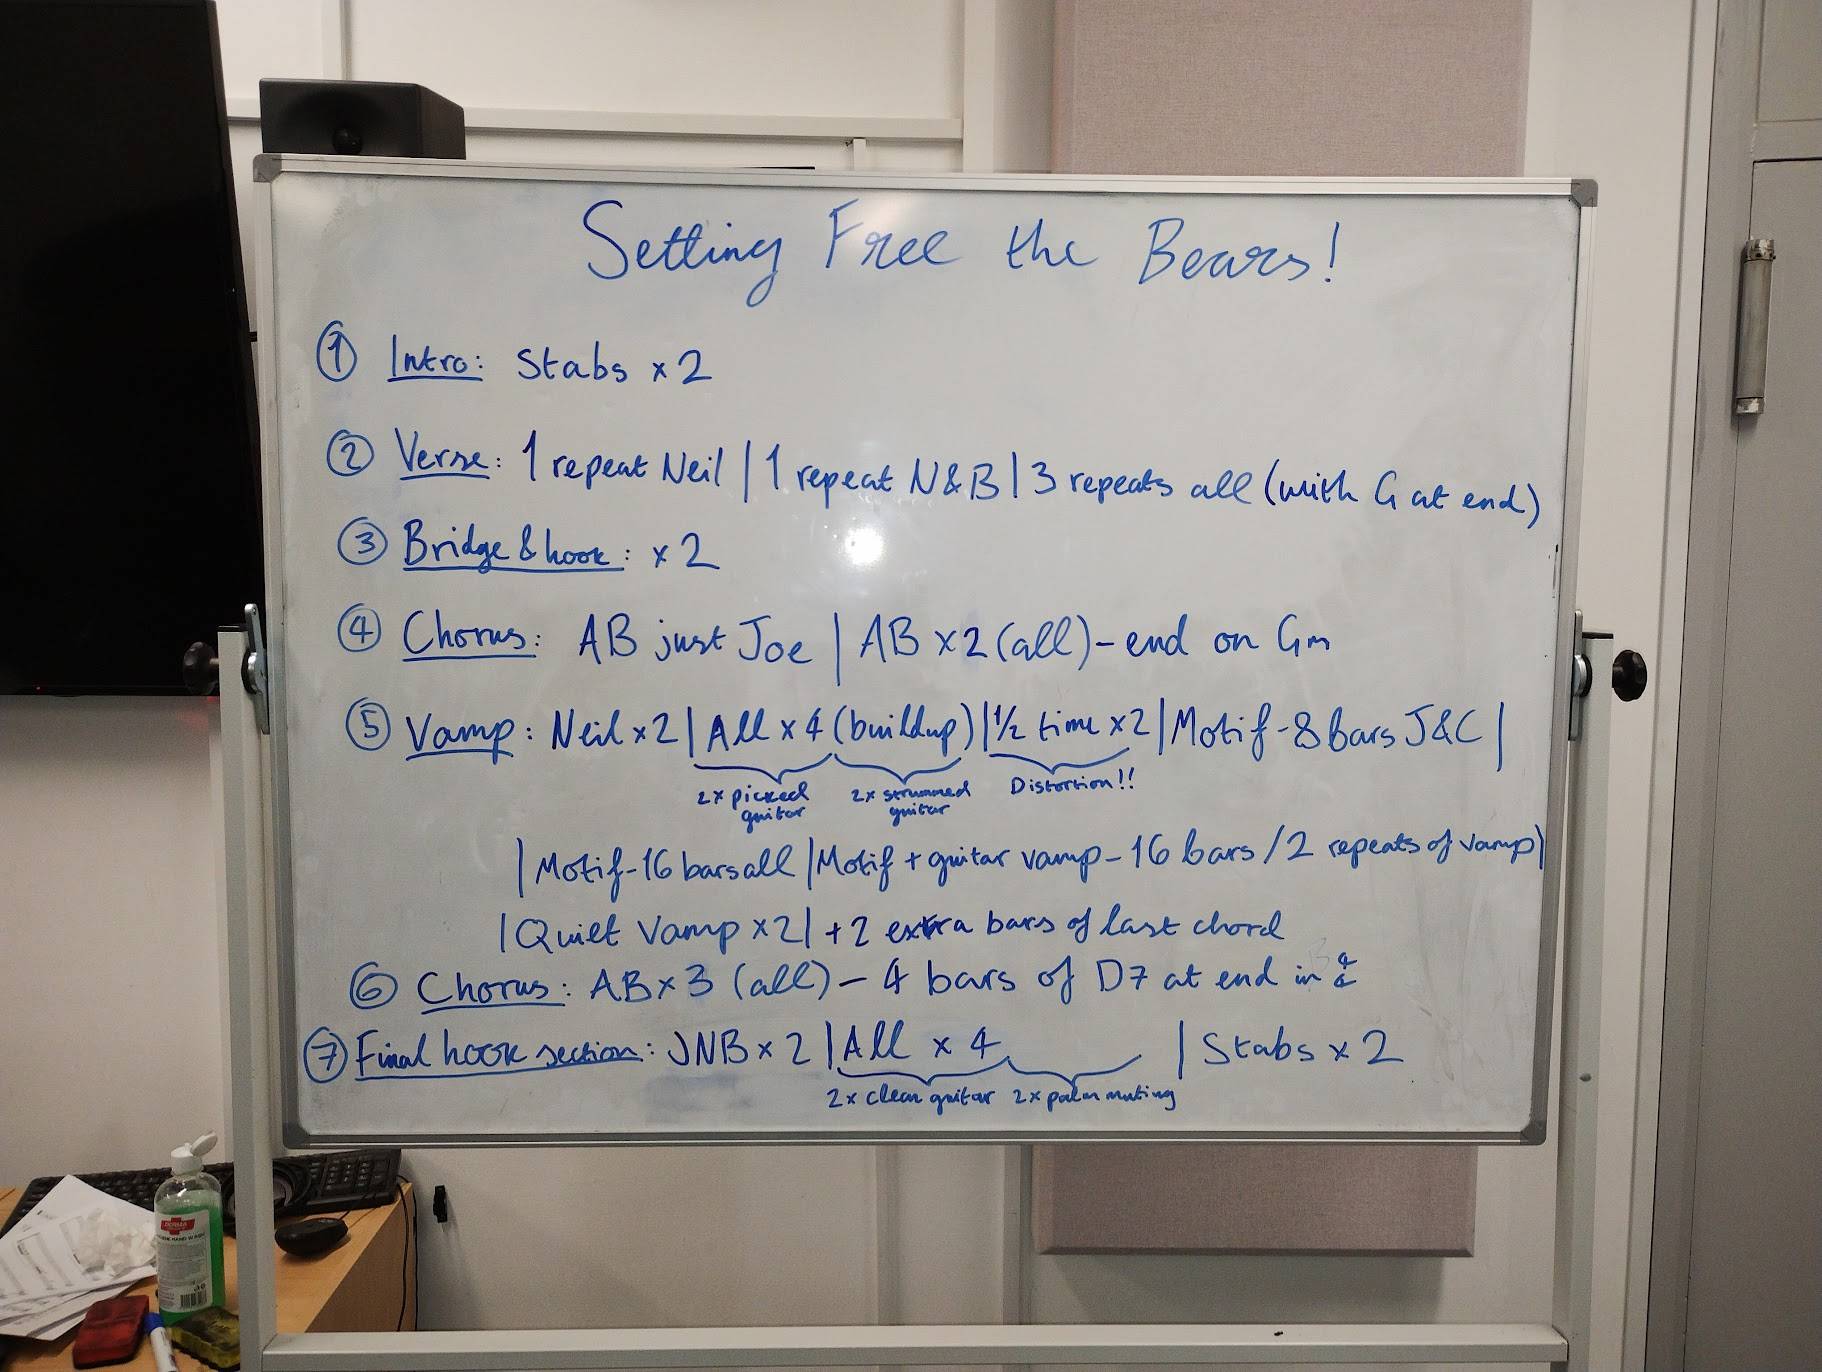 Setting Free the Bears!
① Intro: Stabs x 2
② Verse: 1 repeat Neil | 1 repeat N&B | 3 repeats all (with G at end)
③ Bridge & hook: x 2
④ Chorus: AB just Joe | AB x 2 (all) – end on Gm
⑤ Vamp: Neil x 2 | All x 4 (buildup) | ½ time x 2 | Motif - 8 bars J&C |
2x picked guitar 2x strummed guitar Distortion!!
| Motif - 16 bars all | Motif + guitar vamp - 16 bars / 2 repeats of vamp |
| Quiet Vamp x 2 | + 2 extra bars of last chord
⑥ Chorus: AB x 3 (all) – 4 bars of D7 at end in 4/4
⑦ Final hook section: JNB x 2 | All x 4 | Stabs x 2
2x clean guitar 2x palm muting